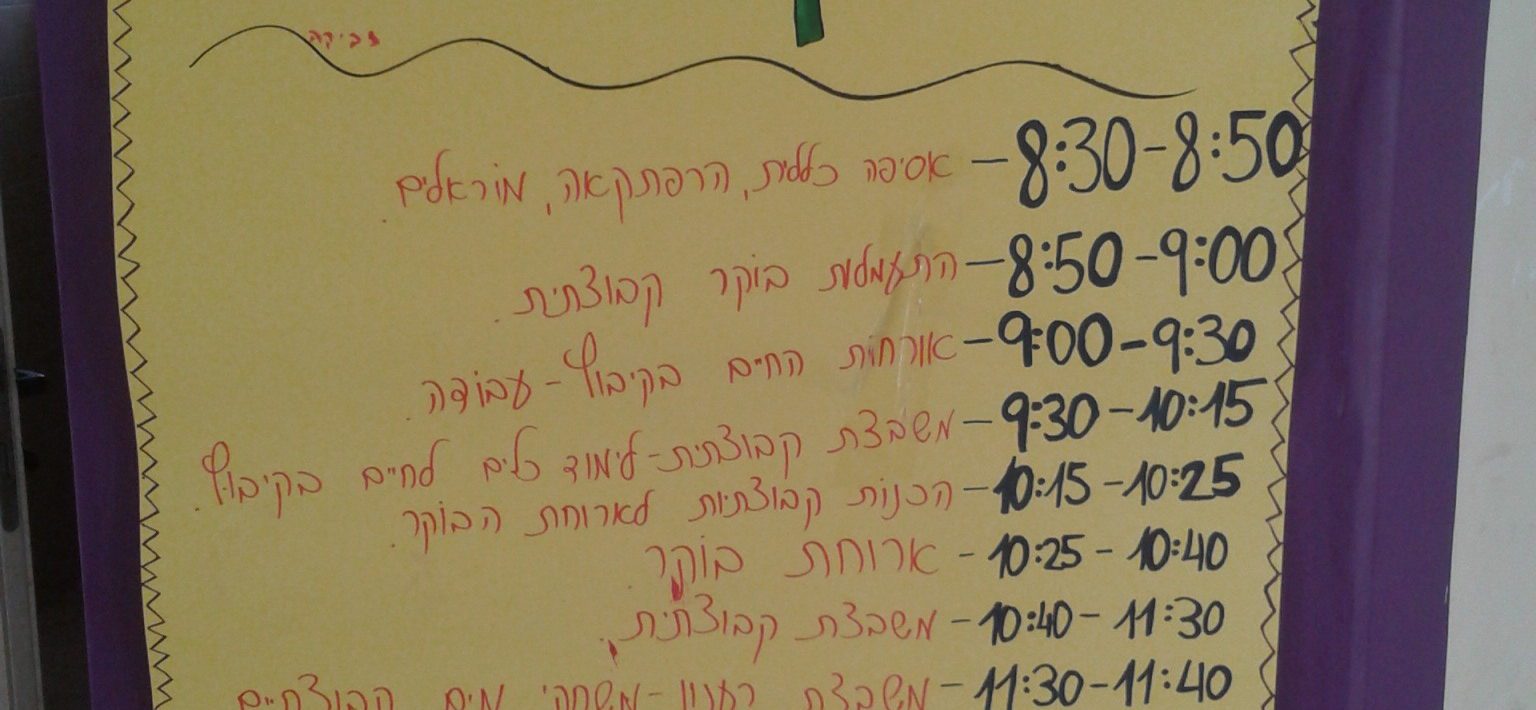 צביקה
8:30-8:50 - אסיפה כללית, הרפתקאה, מוראלים.
8:50-9:00 - התעמלות בוקר קבוצתית.
9:00-9:30 - אורחות החיים בקיבוץ - עבודה.
9:30-10:15 - משבצת קבוצתית - לימוד כלים לחיים בקיבוץ.
10:15-10:25 - הכנות קבוצתיות לארוחת הבוקר.
10:25-10:40 - ארוחת בוקר.
10:40-11:30 - משבצת קבוצתית.
11:30-11:40 - משבצת רענון - משחקי מים קבוצתיים